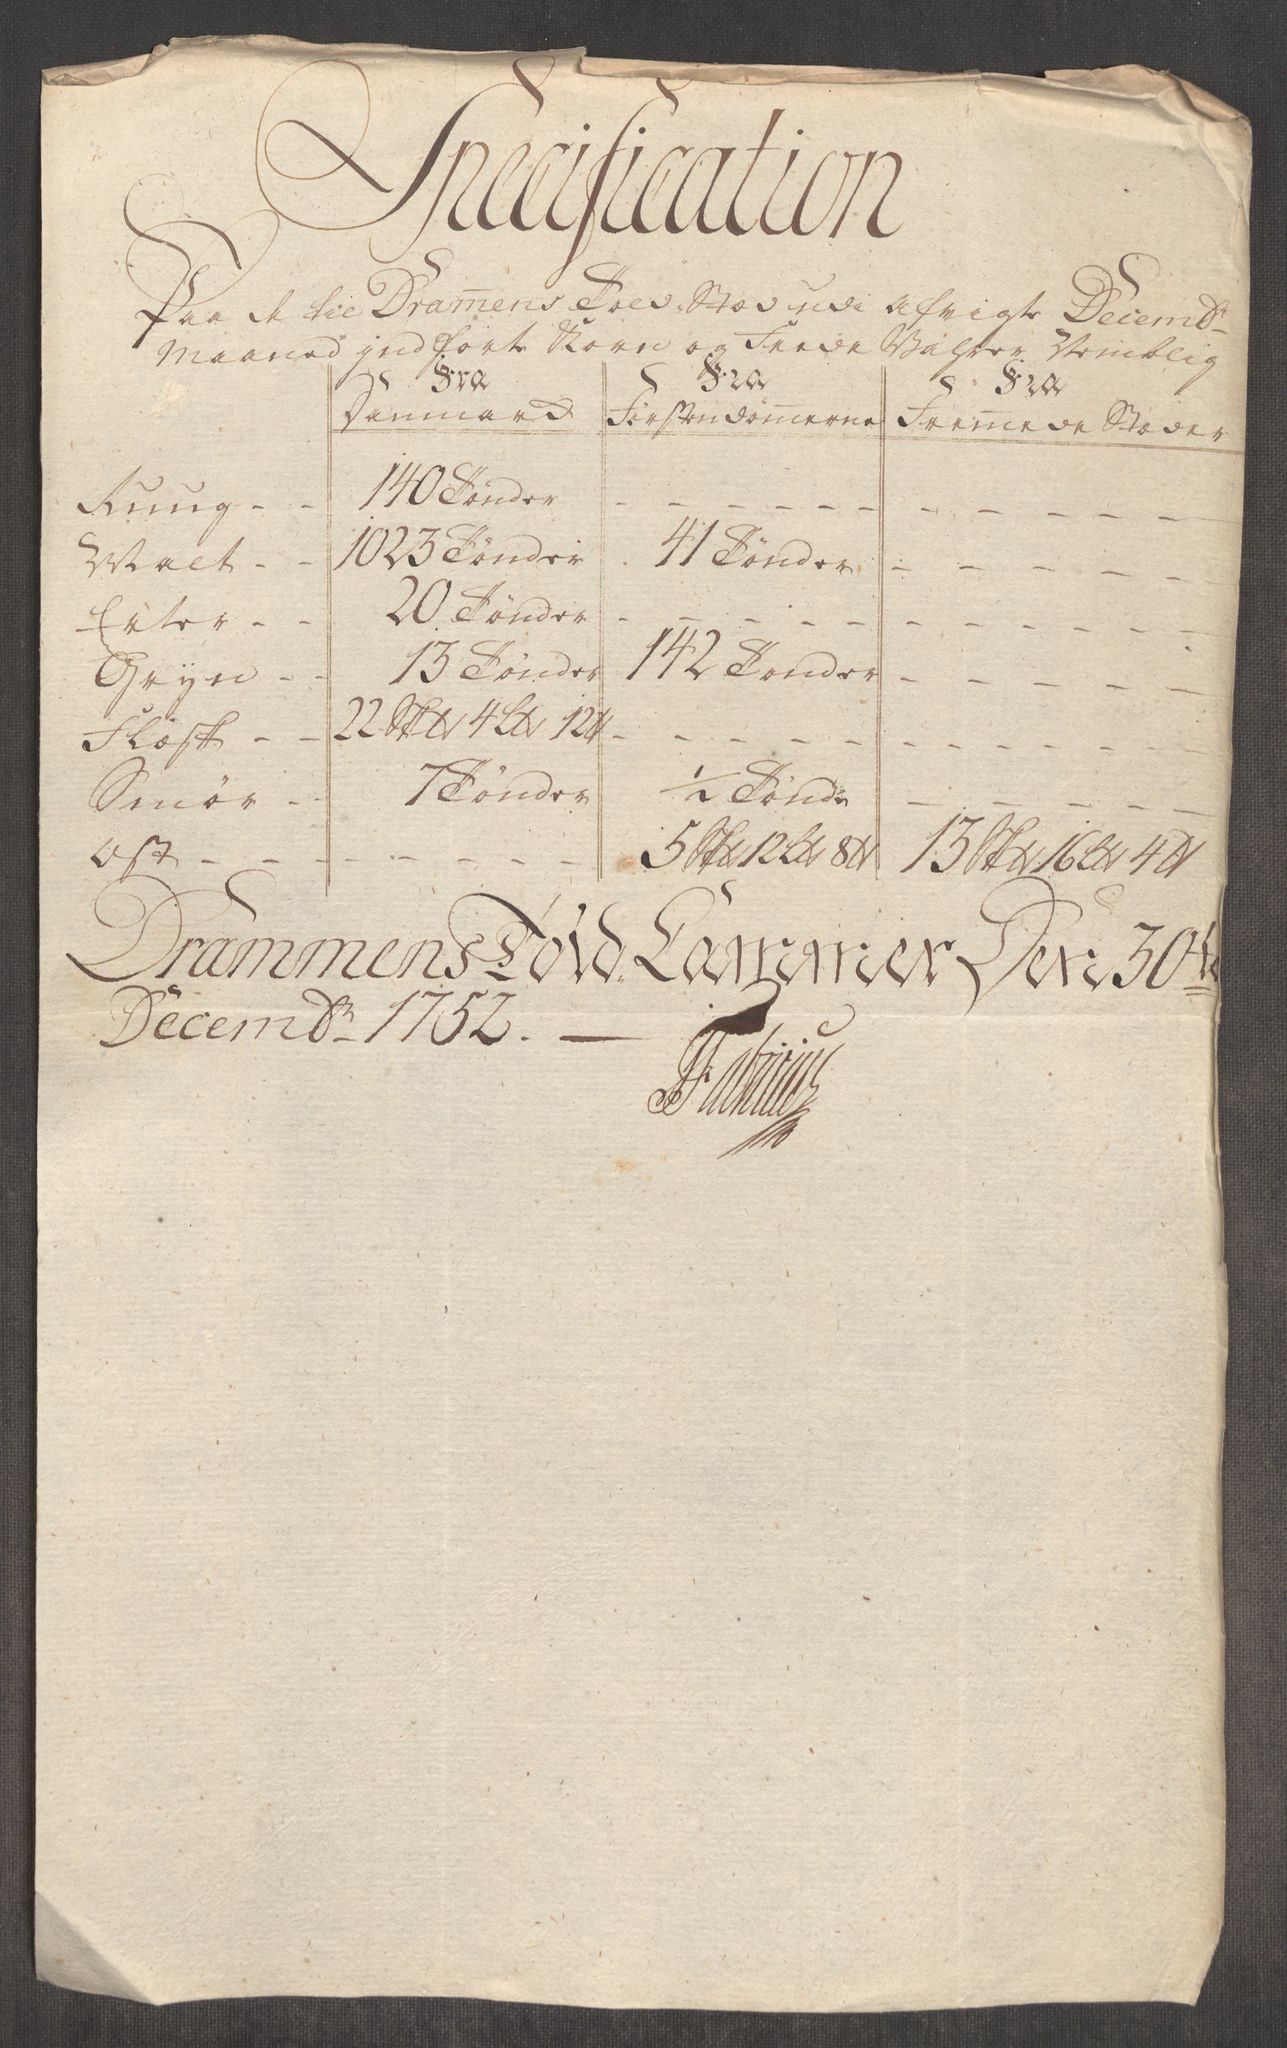 Specification
Paa de til Dram̄ens Told-Stæd udi afvigte Decembr
Maaned indførte Korn og Feede Vahrer Nemblig
fra fra fra
Danmarck Førstendom̄erne Frem̄ede Stæder
Ruug - - 140 Tønder - - - - - - - - - -
Malt - - 1023 Tønder 41 Tønder - - - - -
Erter - - 20 Tønder - - - - - - - - - -
Gryn - - 13 Tønder 142 Tønder - - - - -
Flesk - - 22 S℔ 4 L℔ 12 ℔ - - - - - - - - - -
Smør - - 7 Tønder ½ Tønde - - - - -
Ost - - - - - - - 5 S℔ 12 L℔ 8 ℔ 13 S℔ 16 L℔ 4 ℔
Drammens Told Cammer Den 30te
Decembr 1752. —
Fabricius